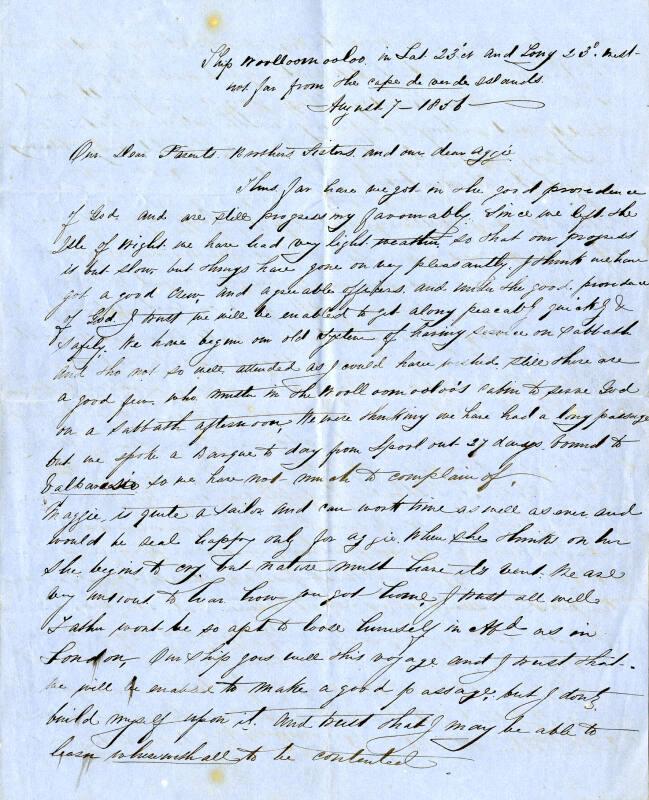 Ship Woolloomooloo. in Lat 23°ct and Long 23° West
not far from the cape de verde Islands.
August 7 - 1856
Our Dear Parents. Brothers Sisters. and our dear aggie.
Thus far have we got in the good providence
of God. and are still progressing favourably. Since we left the
Isle of Wight we have had very light weather so that our progress
is but slow. but things have gone on very pleasantly I think we have
got a good Crew. and agreable officers. and under the good. providence
of God I trust we will be enabled to get along peacably quickly &
Safely. We have begun our old System of having service on Sabbath
and tho not so well attended as I could have wished. still there are
a good few. who muster in the Woolloomooloo's cabin to serve God
on a Sabbath afternoon. We were thinking we have had a long passage
but we spoke a Barque to day from Lpool out 27 days. bound to
so we have not much to complain of.
Maggie, is quite a sailor and can work time as well as ever and
would be real happy only for aggie. When she thinks on her
She begins to cry. but nature must have its vent. We are
very anxious to hear how you got home. I trust all well
Father wont be so apt to loose himself in Abd as in
London, Our Ship goes well this voyage and I trust that
we will be enabled to make a good passage. but I dont
build myself upon it. and trust that I may be able to
learn wherewithall to be contented